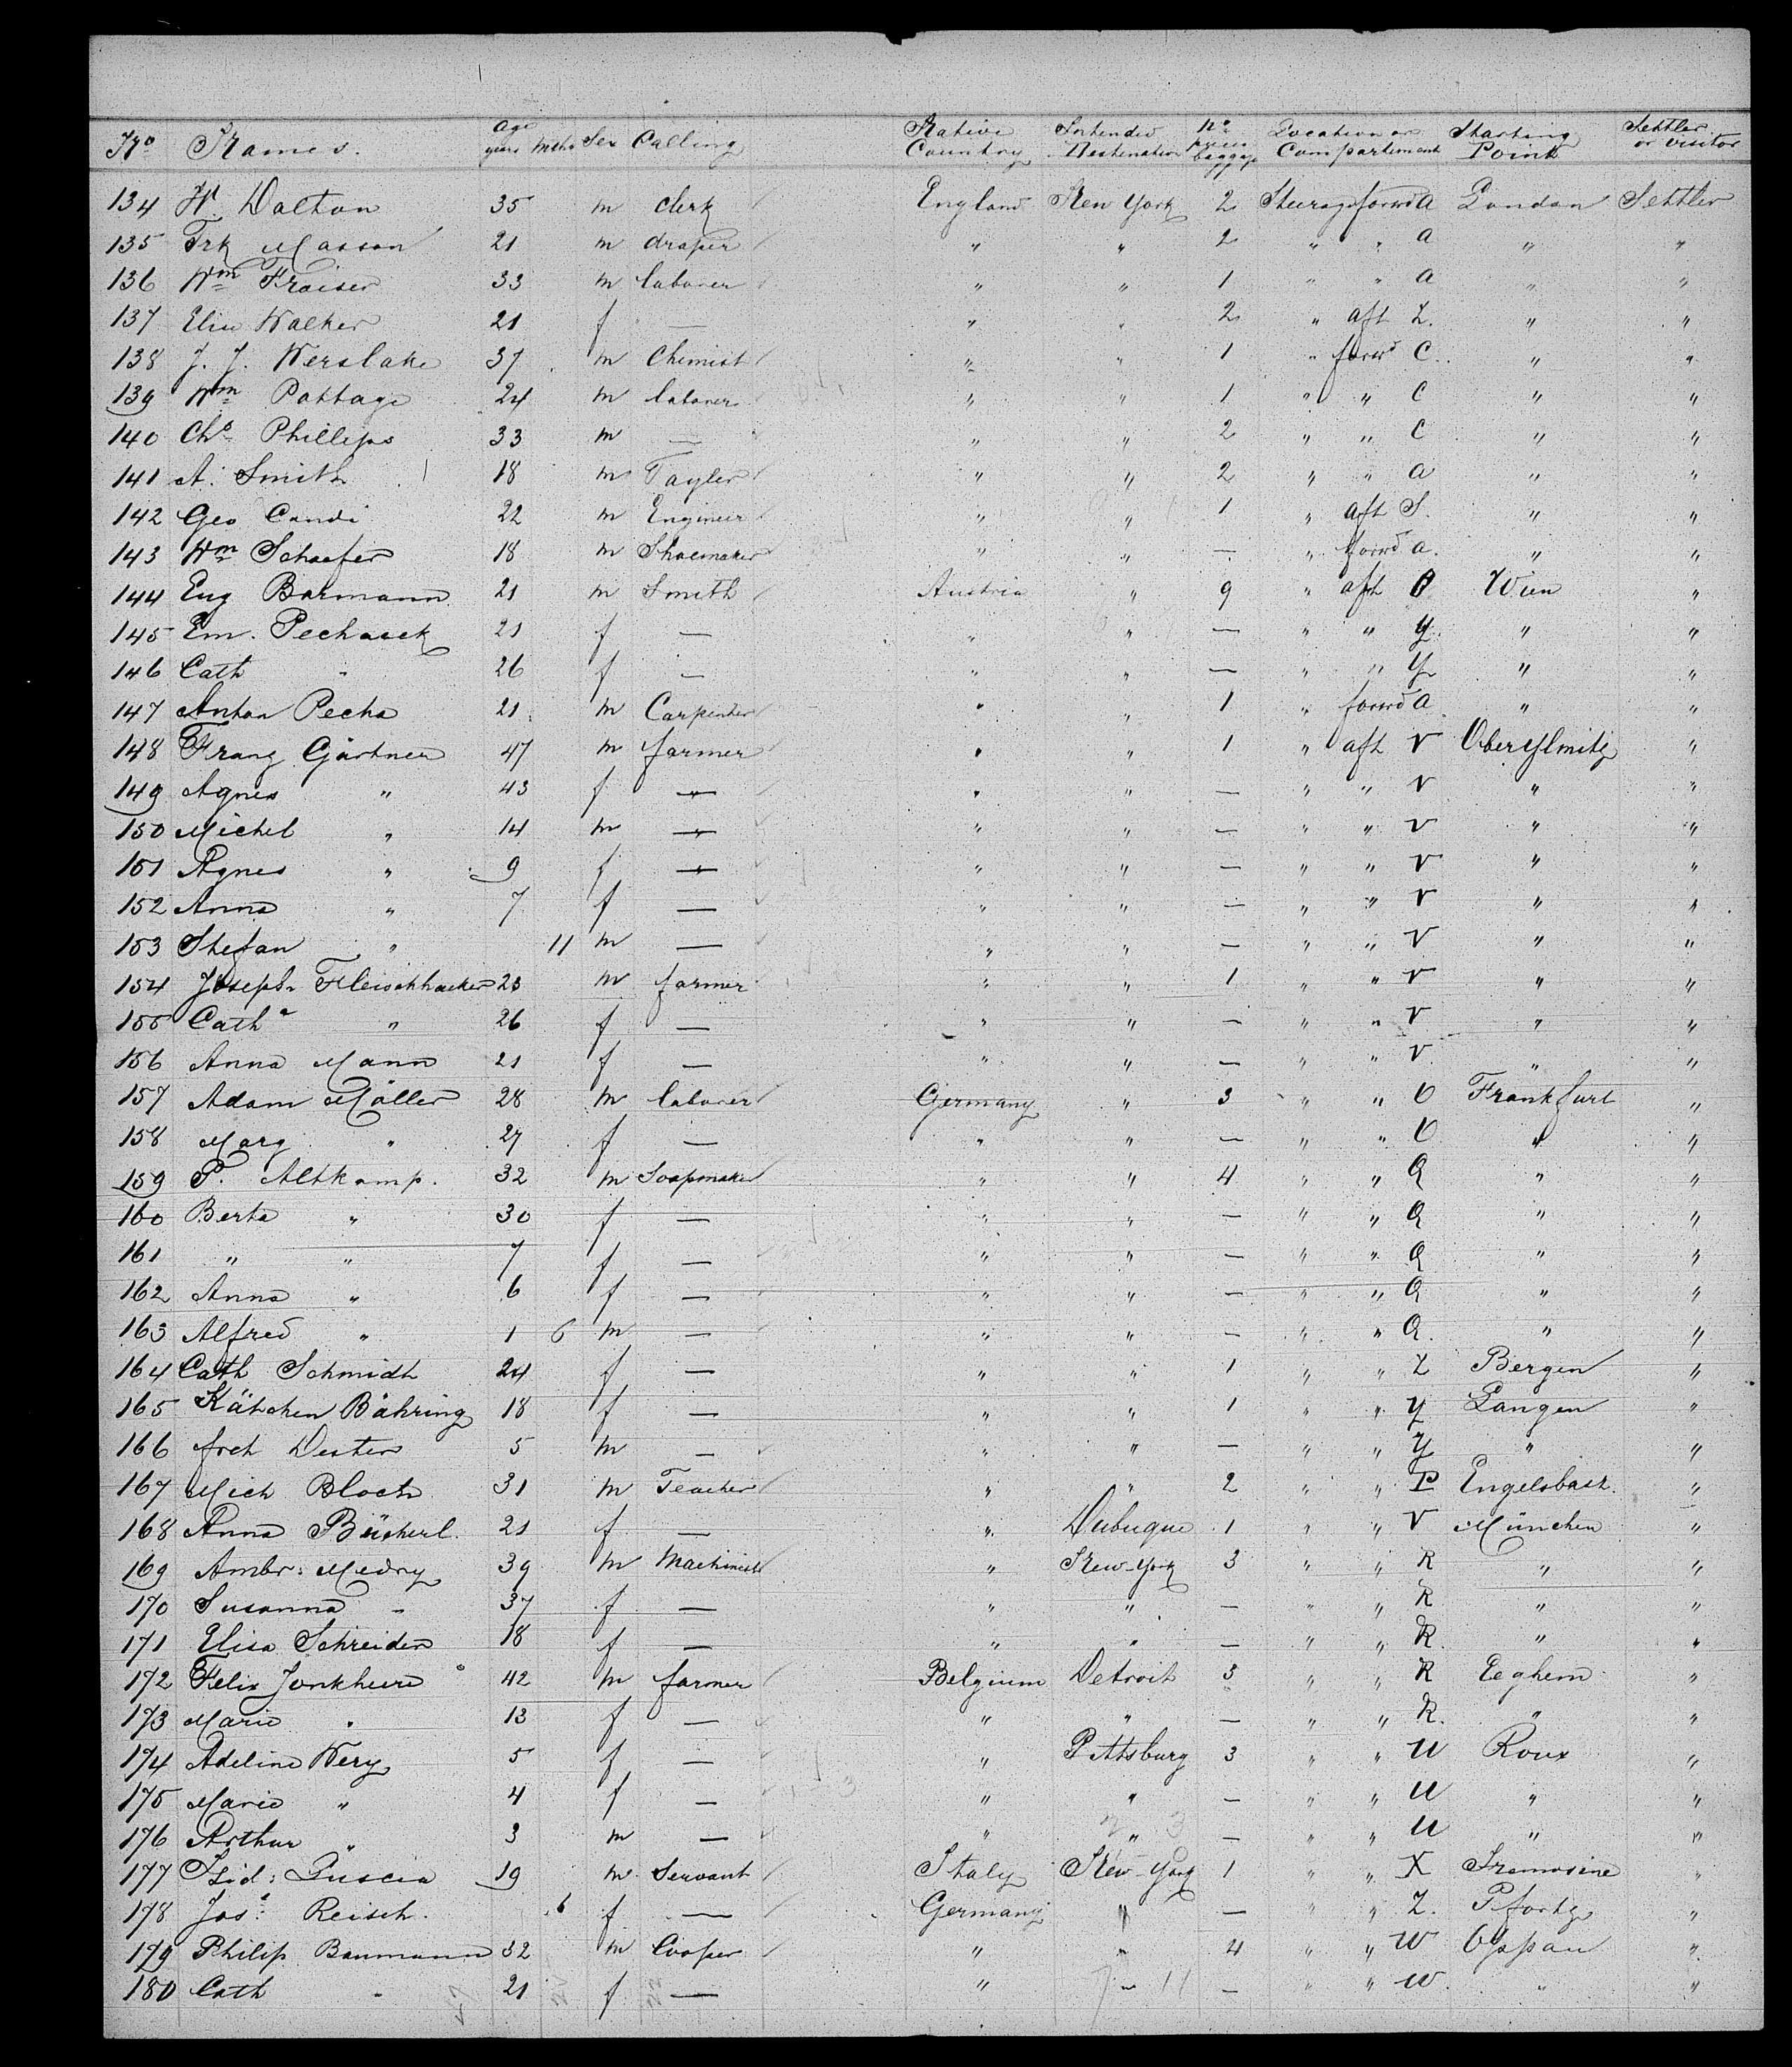 No Names. Age years Mths Sex Calling Native Country Intended Destination No pieces baggage Location or Compartment Starting Point Settler or visitor
134 W. Dalton 35 m clerk England New York 2 Steerage forwd A London Settler
135 Frk Masson 21 m draper " " 2 " " a " "
136 Wm Fraiser 33 m laborer " " 1 " " a " "
137 Eliu Walker 21 f — " " 2 " aft Z. " "
138 J. J. Werslake 37 m Chemist " " 1 " forwd C. " "
139 Wm Pattage 24 m laborer " " 1 " " C " "
140 Chs Phillips 33 m — " " 2 " " C " "
141 A. Smith 18 m Tayler " " 2 " " a " "
142 Geo Candi 22 m Engineer " " 1 " aft S. " "
143 Wm Schaefer 18 m Shoemaker " " — " forwd a. " "
144 Eug Barmann 21 m Smith Austria " 9 " aft O Wien "
145 Em. Pechasek 21 f — " " — " " Y. " "
146 Cath " 26 f — " " — " " Y " "
147 Anton Pecha 21 m Carpenter " " 1 " forwd a " "
148 Franz Gärtner 47 m farmer " " 1 " aft V Oberylmitz "
149 Agnes " 43 f — " " — " " V " "
150 Michel " 14 m — " " — " " V " "
151 Agnes " 9 f — " " — " " V " "
152 Anna " 7 f — " " — " " V " "
153 Stefan " 11 m — " " — " " V " "
154 Joseph Fleischhacker 23 m farmer " " 1 " " V " "
155 Catha " 26 f — " " — " " V " "
156 Anna Mann 21 f — " " — " " V " "
157 Adam Möller 28 m laborer Germany " 3 " " O Frankfurt "
158 Marg " 27 f — " " — " " O " "
159 P. Altkamp. 32 m Soapmaker " " 4 " " Q " "
160 Berta " 30 f — " " — " " Q " "
161 " " 7 f — " " — " " Q " "
162 Anna " 6 f — " " — " " Q " "
163 Alfred " 1 6 m — " " — " " Q. " "
164 Cath Schmidt 24 f — " " 1 " " Z Bergen "
165 Kätchen Bähring 18 f — " " 1 " " Y Langen "
166 Dester 5 m — " " — " " Y " "
167 Mich Bloch 31 m Teacher " " 2 " " P Engelsbach. "
168 Anna Bücherl. 21 f — " Dubuque 1 " " V München "
169 Ambr: Medry 39 m Machinist " New-York 3 " " R " "
170 Susanna " 37 f — " " — " " R " "
171 Elisa Schreider 18 f — " " — " " R. " "
172 Felix Jonkheere 42 m farmer Belgium Detroit 3 " " R Eeghem "
173 Marie " 13 f — " " — " " R. " "
174 Adeline Wery 5 f — " Pittsburg 3 " " U Roux "
175 Marie " 4 f — " " — " " U " "
176 Arthur " 3 m — " " — " " U " "
177 Isid: Luscia 19 m Servant Italy New-York 1 " " X Tremosine "
178 Josa Reisch. 6 f — Germany " — " " Z. Pfortz "
179 Philip Baumann 32 m Cooper " " 4 " " W Oppau "
180 Cath " 21 f — " " — " " W. " "
7 - 11